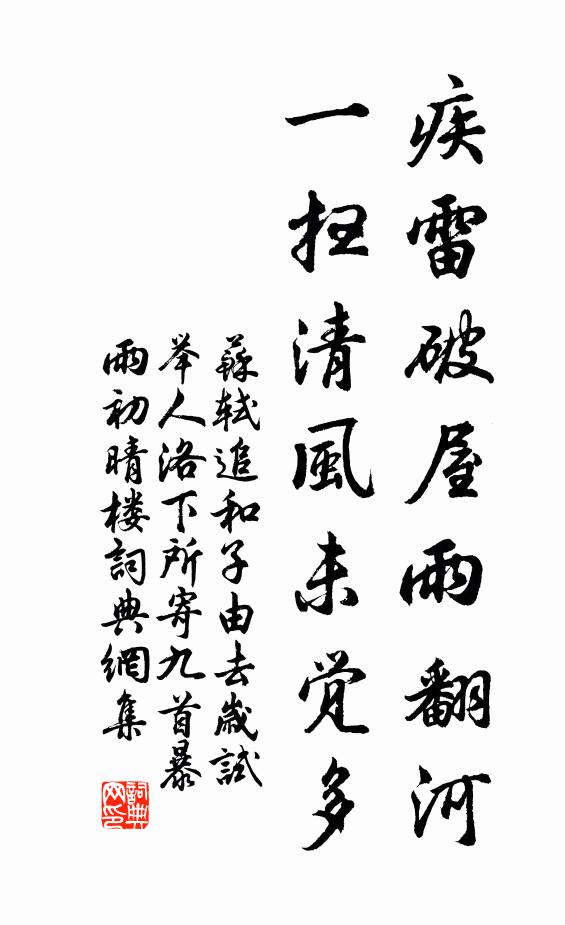 疾雷破屋雨翻河
一扫清風未觉多
蘇轼追和子由去歲試
举人洛下所寄九首暴
雨初晴楼詞典網集
詞典
网印